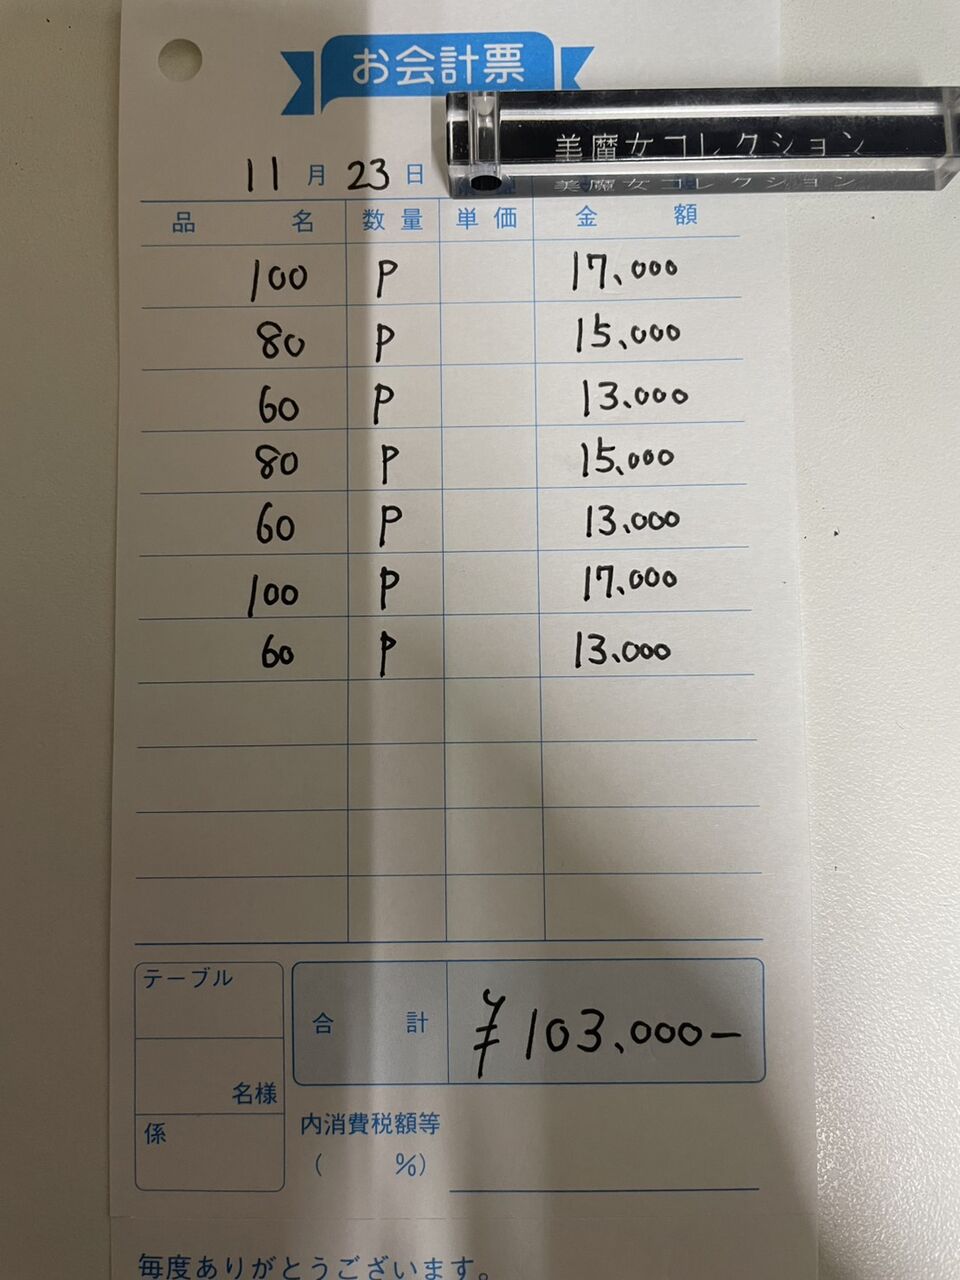 お会計票
美魔女コレクション
美魔女コレクション
11 月 23 日
品 名 数 量 単 価 金 額
100 P 17,000
80 P 15,000
60 P 13,000
80 P 15,000
60 P 13,000
100 P 17,000
60 P 13,000
テーブル
名様
係
合 計 ¥103,000-
内消費税額等
( %)
毎度ありがとうございます。